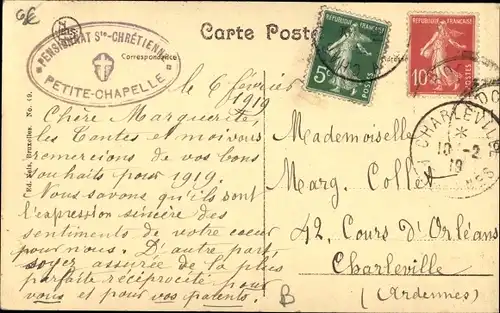 6£
Carte Postale
Correspondance
Adresse
PENSIONNAT Ste-CHRÉTIENNE
PETITE-CHAPELLE
RÉPUBLIQUE FRANÇAISE
5c
POSTES
RÉPUBLIQUE FRANÇAISE
10c
POSTES
CHARLEVILLE
10 -2
19
Ed. Nels, Bruxelles. No. 19.
le 6 février
1919
Chère Marguerite,
les Tantes et moi vous
remercions de vos bons
souhaits pour 1919.
Nous savons qu'ils sont
l'expression sincère des
sentiments de votre cœur
pour nous. D'autre part
soyez assurée de la plus
parfaite réciprocité pour
vous et pour vos parents.
Mademoiselle
Marg. Collet
42, Cours d'Orléans
Charleville
(Ardennes)
B